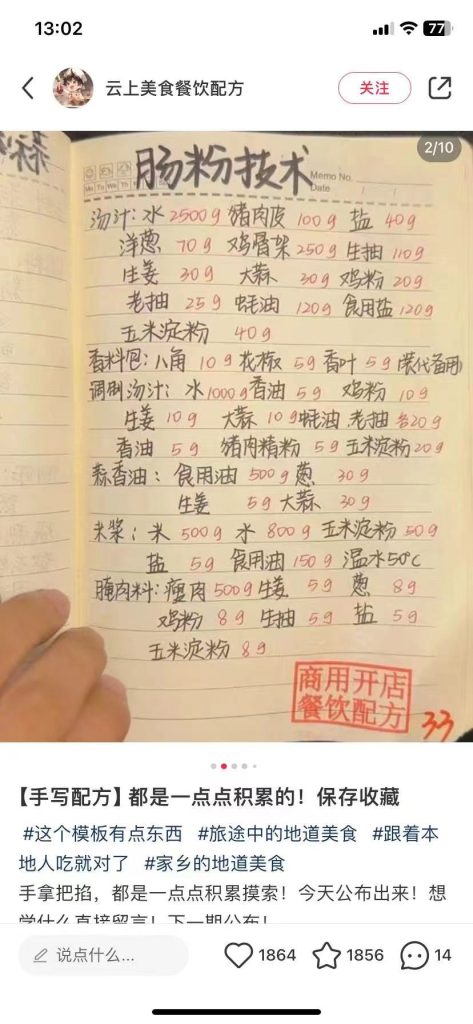 13:02
77
云上美食餐饮配方
关注
2/10
肠粉技术
Memo No.
Date
Mo Tu We Th
汤汁: 水 2500g 猪肉皮 100g 盐 40g
洋葱 70g 鸡骨架 250g 生抽 110g
生姜 30g 大蒜 30g 鸡粉 20g
老抽 25g 蚝油 120g 食用盐 120g
玉米淀粉 40g
香料包: 八角 10g 花椒 5g 香叶 5g (装代备用)
调制汤汁: 水 1000g 香油 5g 鸡粉 10g
生姜 10g 大蒜 10g 蚝油 老抽 各20g
香油 5g 猪肉精粉 5g 玉米淀粉 20g
蒜香油: 食用油 500g 葱 30g
生姜 5g 大蒜 30g
米浆: 米 500g 水 800g 玉米淀粉 50g
盐 5g 食用油 150g 温水50℃
腌肉料: 瘦肉 500g 生姜 5g 葱 8g
鸡粉 8g 生抽 5g 盐 5g
玉米淀粉 8g
商用开店
餐饮配方
33
【手写配方】都是一点点积累的！保存收藏
#这个模板有点东西 #旅途中的地道美食 #跟着本
地人吃就对了 #家乡的地道美食
手拿把掐，都是一点点积累摸索！今天公布出来！想
学什么直接留言！下一期公布！
说点什么...
1864
1856
14